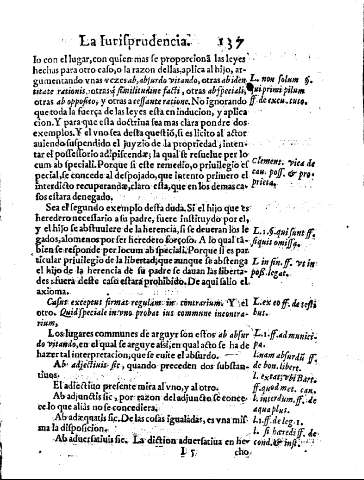 La Iurisprudencia. 137
lo con el lugar, con quien mas se proporcionà las leyes
hechas para otro caso, o la razon dellas, aplica al hijo, ar-
gumentando vnas vezes ab, absurdo vitando, otras ab iden
titate rationis, otras q̃ similitudine facti, otras ab speciali,
otras ab opposito, y otras a cessante ratione. No ignorando
que toda la fuerça de las leyes esta en inducion, y aplica
cion. Y para que esta doctrina sea mas clara pondre dos
exemplos. Y el vno sea desta questiõ, si es licito al actor
auiendo suspendido el juyzio de la propriedad, inten-
tar el possessorio adipiscendæ; la qual se resuelue por lo
cum ab speciali. Porque si este remedio, o priuilegio es
special, se concede al despojado, que intento primero el
interdicto recuperandæ, claro esta, que en los demas ca-
sos estara denegado.
Sea el segundo exemplo desta duda. Si el hijo que es
heredero necessario a su padre, fuere instituydo por el,
y el hijo se abstuuiere de la herencia, si se deueran los le
gados, alomenos por ser heredero forçoso. A lo qual tã-
bien se responde por locum ab speciali. Porque si es par
ticular priuilegio de la libertad; que aunque se abstenga
el hijo de la herencia de su padre se dauan las liberta-
des: fuera deste caso estarà prohibido. De aqui salio el
axioma.
Casus exceptus firmat regulam in contrarium. Y el
otro. Quid speciale in vno probat ius commune incontra-
rium,
Los lugares communes de arguyr son estos ab absur
do vitando, en el qual se arguye assi, en qual acto se ha de
hazer tal interpretacion, que se euite el absurdo.
Ab adiectiuis sic, quando preceden dos substan-
tiuos.
El adiectiuo presente mira al vno, y al otro.
Ab adjunctis sic, por razon del adjuncto se conce-
ce lo que aliàs no se concediera.
Ab adæquatis sic. De las cosas igualadas, es vna mis
ma la disposicion.
Ab aduersatiuis sic. La diction aduersatiua en her
I 5 cho
L. non solum §.
qui primi pilum
ff. de excu. tuto.
Clement. vica de
cau. poss. & pro-
prieta.
L. 1. §. qui sunt ff.
si quis omissa.
L. in fin. ff. vt in
poss. legat.
L. ex eo ff. de testi
bus.
L. 1. ff. ad munici-
pa.
L. nam absurdũ ff.
de bon. libert.
ff. quod met. cau.
L. interdum. ff. de
aqua plu.
L. 1. ff. de leg. 1.
L. si hæredi ff. de
cond. & inst.